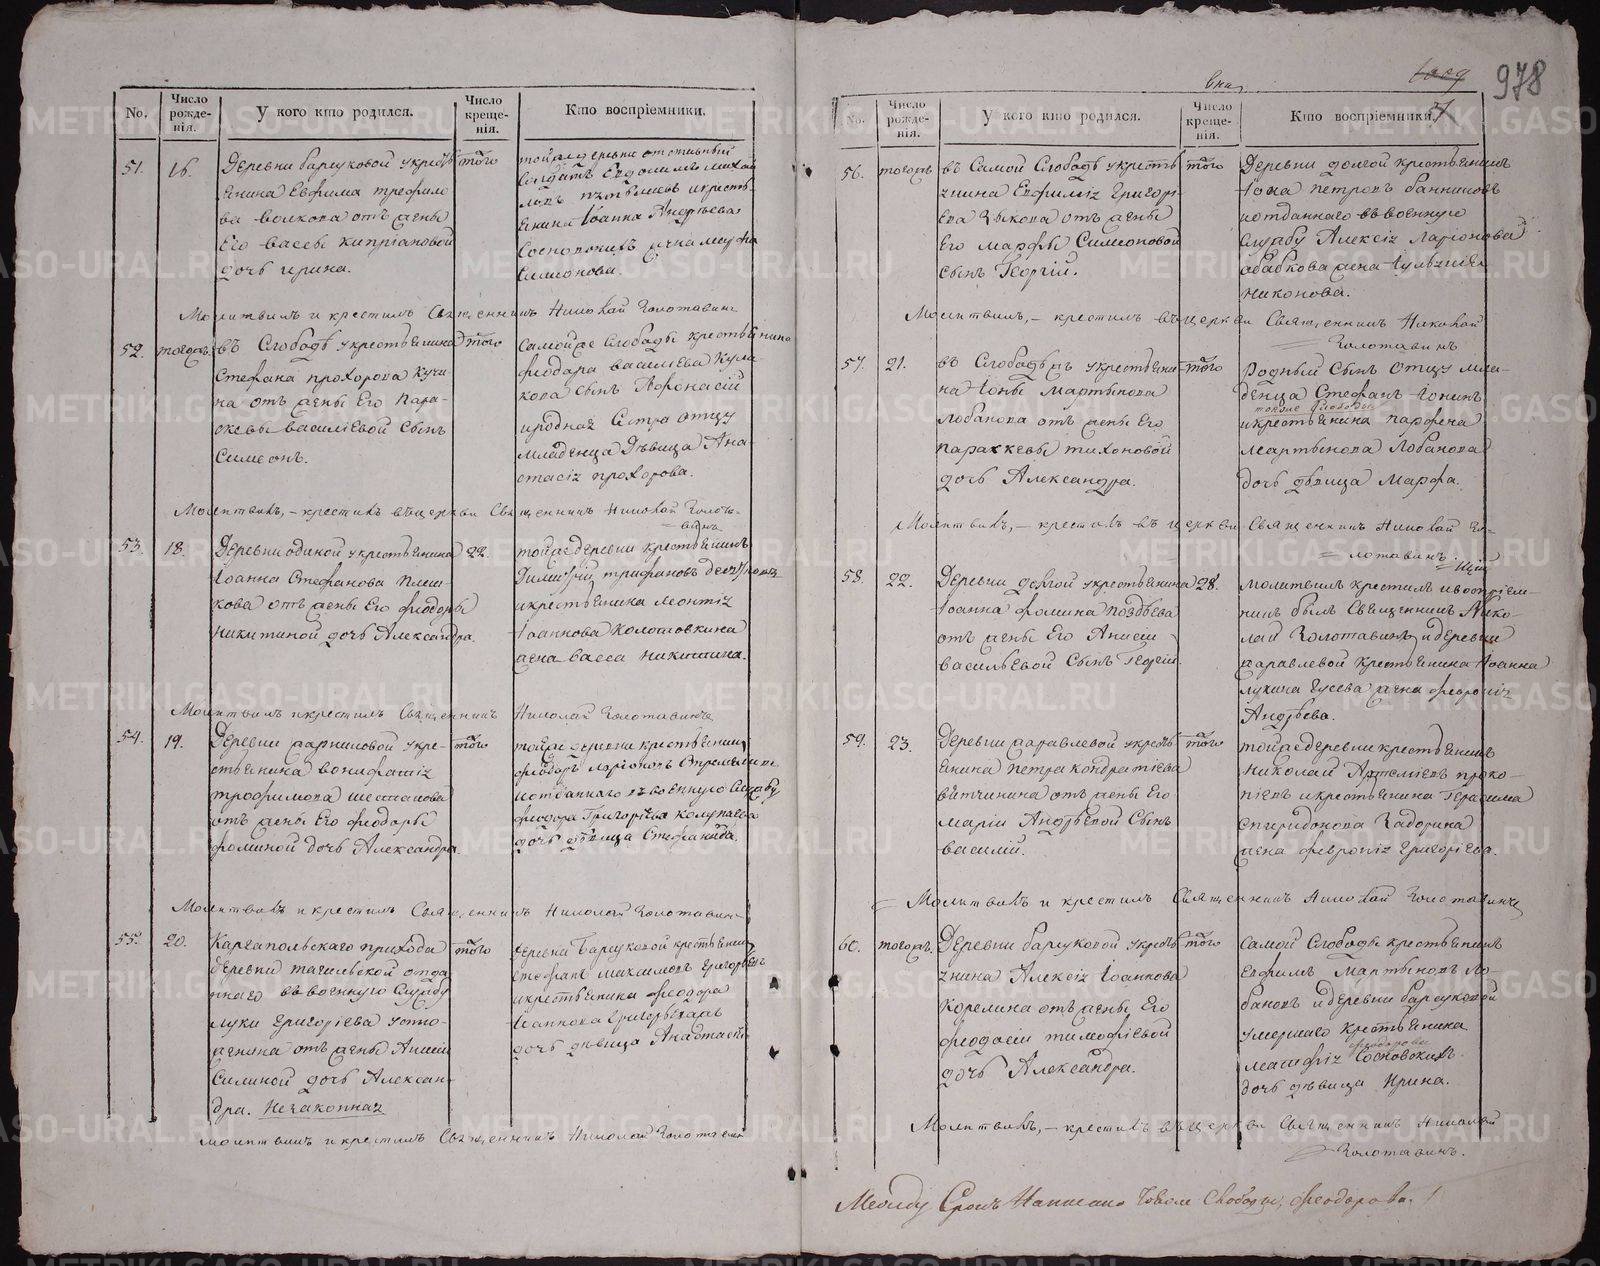 No.
Число рожде-нія.
У кого кто родился.
Число креще-нія.
Кто воспріемники.
51.
16.
Деревни барсуковой у крестъ
янина Евфима трефило
ва волкова отъ жены
Его вассы кипріановой
дочь ирина.
того
тойже деревни отставный
Солдатъ
и крестъ-
янина Іоанна Андрѣева
жена марфа
Симіонова.
Молитвилъ и крестилъ Священникъ Николай Золотавинъ
52.
тогожъ
въ Слободѣ у крестьянина
Стефана прохорова кучи-
на отъ жены Его Пара-
скевы василіевой Сынъ
Симеонъ.
того
Самойже Слободы крестьянина
феодора василіева кули-
кова сынъ Афонасій
и родная Сестра отцу
младенца дѣвица Ана-
стасія прохорова.
Молитвилъ, – крестилъ въ церкви Священникъ Николай Золота-
винъ.
53.
18.
Деревни одиной у крестьянина
Іоанна Стефанова плеш-
кова отъ жены Его феодоры
никитиной дочь Александра.
22.
тойже деревни крестьянинъ
Димитрій трифановъ
и крестьянина леонтія
Іоаннова Колотовкина
жена васса никитина.
Молитвилъ и крестилъ Священникъ Николай Золотавинъ
54.
19.
Деревни жарниковой у кре-
стьянина вонифатія
трофимова шестакова
отъ жены Его феодоры
фоминой дочь Александра.
того
тойже деревни крестьянинъ
феодоръ ларіоновъ
и отданнаго въ военную Службу
феодора Григорьева колупаева
дочь дѣвица Стефанида.
Молитвилъ и крестилъ Священникъ Николай Золотавинъ
55.
20.
Каргапольскаго прихода
деревни тагильской отда
ннаго въ военную Службу
луки григоріева устю-
жанина отъ жены Анисіи
Силиной дочь Александ-
дра. Незаконная
того
деревни Барсуковой крестьянинъ
Стефанъ михаиловъ григорьевъ
и крестьянина феодора
Іоаннова григорьевыхъ
дочь дѣвица Анастасія
Молитвилъ и крестилъ Священникъ Николай Золотавинъ
978
No.
Число рожде-нія.
У кого кто родился.
Число креще-нія.
Кто воспріемники.
56.
тогожъ
въ Самой Слободѣ у крестья
янина Евфимія Григорі-
ева зыкова отъ жены
Его марфы Симеоновой
Сынъ Георгій.
того
Деревни долгой крестьянинъ
Іона петровъ банниковъ
и отданнаго въ военную
Службу Алексія Ларіонова
обабкова жена Іульянія
Никонова.
Молитвилъ, – крестилъ въ церкви Священникъ Николай
Золотавинъ
57.
21.
въ Слободѣ у крестьяни-
на Іоны Мартынова
лобанова отъ жены Его
параскевы тихоновой
дочь Александра.
того
Родный Сынъ отцу мла-
денца Стефанъ Іонинъ
и крестьянина парфена
мартынова Лобанова
дочь дѣвица Марфа.
Молитвилъ, – крестилъ въ церкви Священникъ Николай Зо-
лотавинъ.
58.
22.
Деревни долгой у крестьянина
Іоанна фомина поздѣева
отъ жены Его Анисіи
васильевой Сынъ Георгій.
28.
молитвилъ крестилъ и воспріем-
никъ былъ Священникъ Нико-
лай Золотавинъ и деревни
жаравлевой крестьянина Іоанна
лукина гусева жена февронія
Андрѣева.
59.
23.
Деревни жаравлевой у крестъ
янина петра кондратіева
вятчинина отъ жены Его
маріи Андрѣевой Сынъ
василій.
того
тойже деревни крестьянинъ
николай Артеміевъ проко-
піевъ и крестьянина Герасима
Спиридонова Задорина
жена февронія григоріева.
Молитвилъ и крестилъ Священникъ Николай Золотавинъ
60.
тогожъ.
Деревни барсуковой у крестъ
янина Алексія Іоаннова
Корелина отъ жены Его
феодосіи тимофіевой
дочь Александра.
того
Самой Слободы крестьянинъ
Евфимъ Мартыновъ Ло-
бановъ и деревни барсуковой
умершаго крестьянина
феодорова
матфія Сосновскихъ.
дочь дѣвица Ирина.
Молитвилъ, – крестилъ въ церкви Священникъ Николай
Золотавинъ.
Между Строкъ Написано Слободы, феодорова.